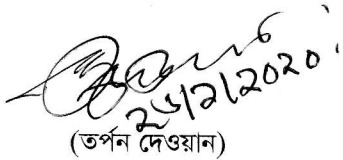 ২৬/২/২০২০
(তর্পন দেওয়ান)